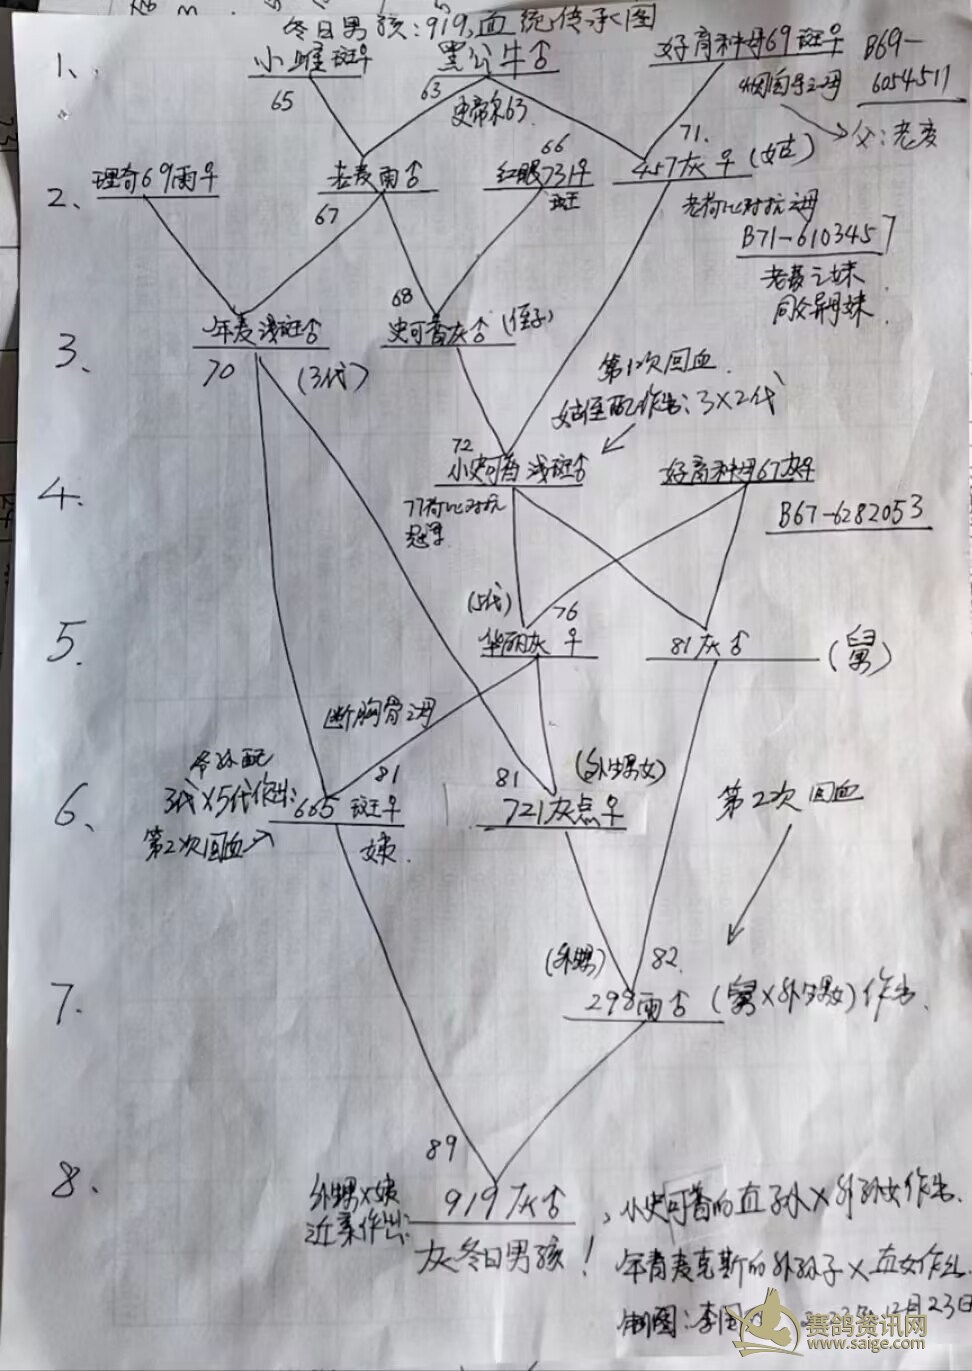 冬日男孩:919,血统传承图
1、 小雌斑♀ 黑公牛♂ 好育种母69斑♀ B69-
6054511
65 63 史帝泵63. 71.
父:老麦
66
2、 理奇69雨♀ 老麦雨♂ 红眼731♀ 457灰♀(姑)
斑
67
B71-6103457
老麦之妹
同父异母妹.
68
3、 年麦浅斑♂ 史可番灰♂(侄子)
70 (3代)
第1次回血.
姑侄配作出:3×2代
72
4、 小史可番浅斑♂ 好育种母67灰♀
B67-6282053
(5代) 76
5. 华丽灰♀ 81灰♂ (舅)
断胸骨之母
爷孙配
3代×5代作出: 81 81 (外甥女)
6、 665斑♀ 721灰点♀ 第2次回血
第2次回血→ 姨.
(外甥) 82.
7. 298雨♂ (舅×外甥女)作出.
89
8. 外甥×姨
近亲作出: 919灰♂ ,小史可番的直子孙×外孙女作出.
灰冬日男孩!
年青麦克斯的外孙子×直女作出.
制图:李国 12月23日
赛鸽资讯网
www.saige.com